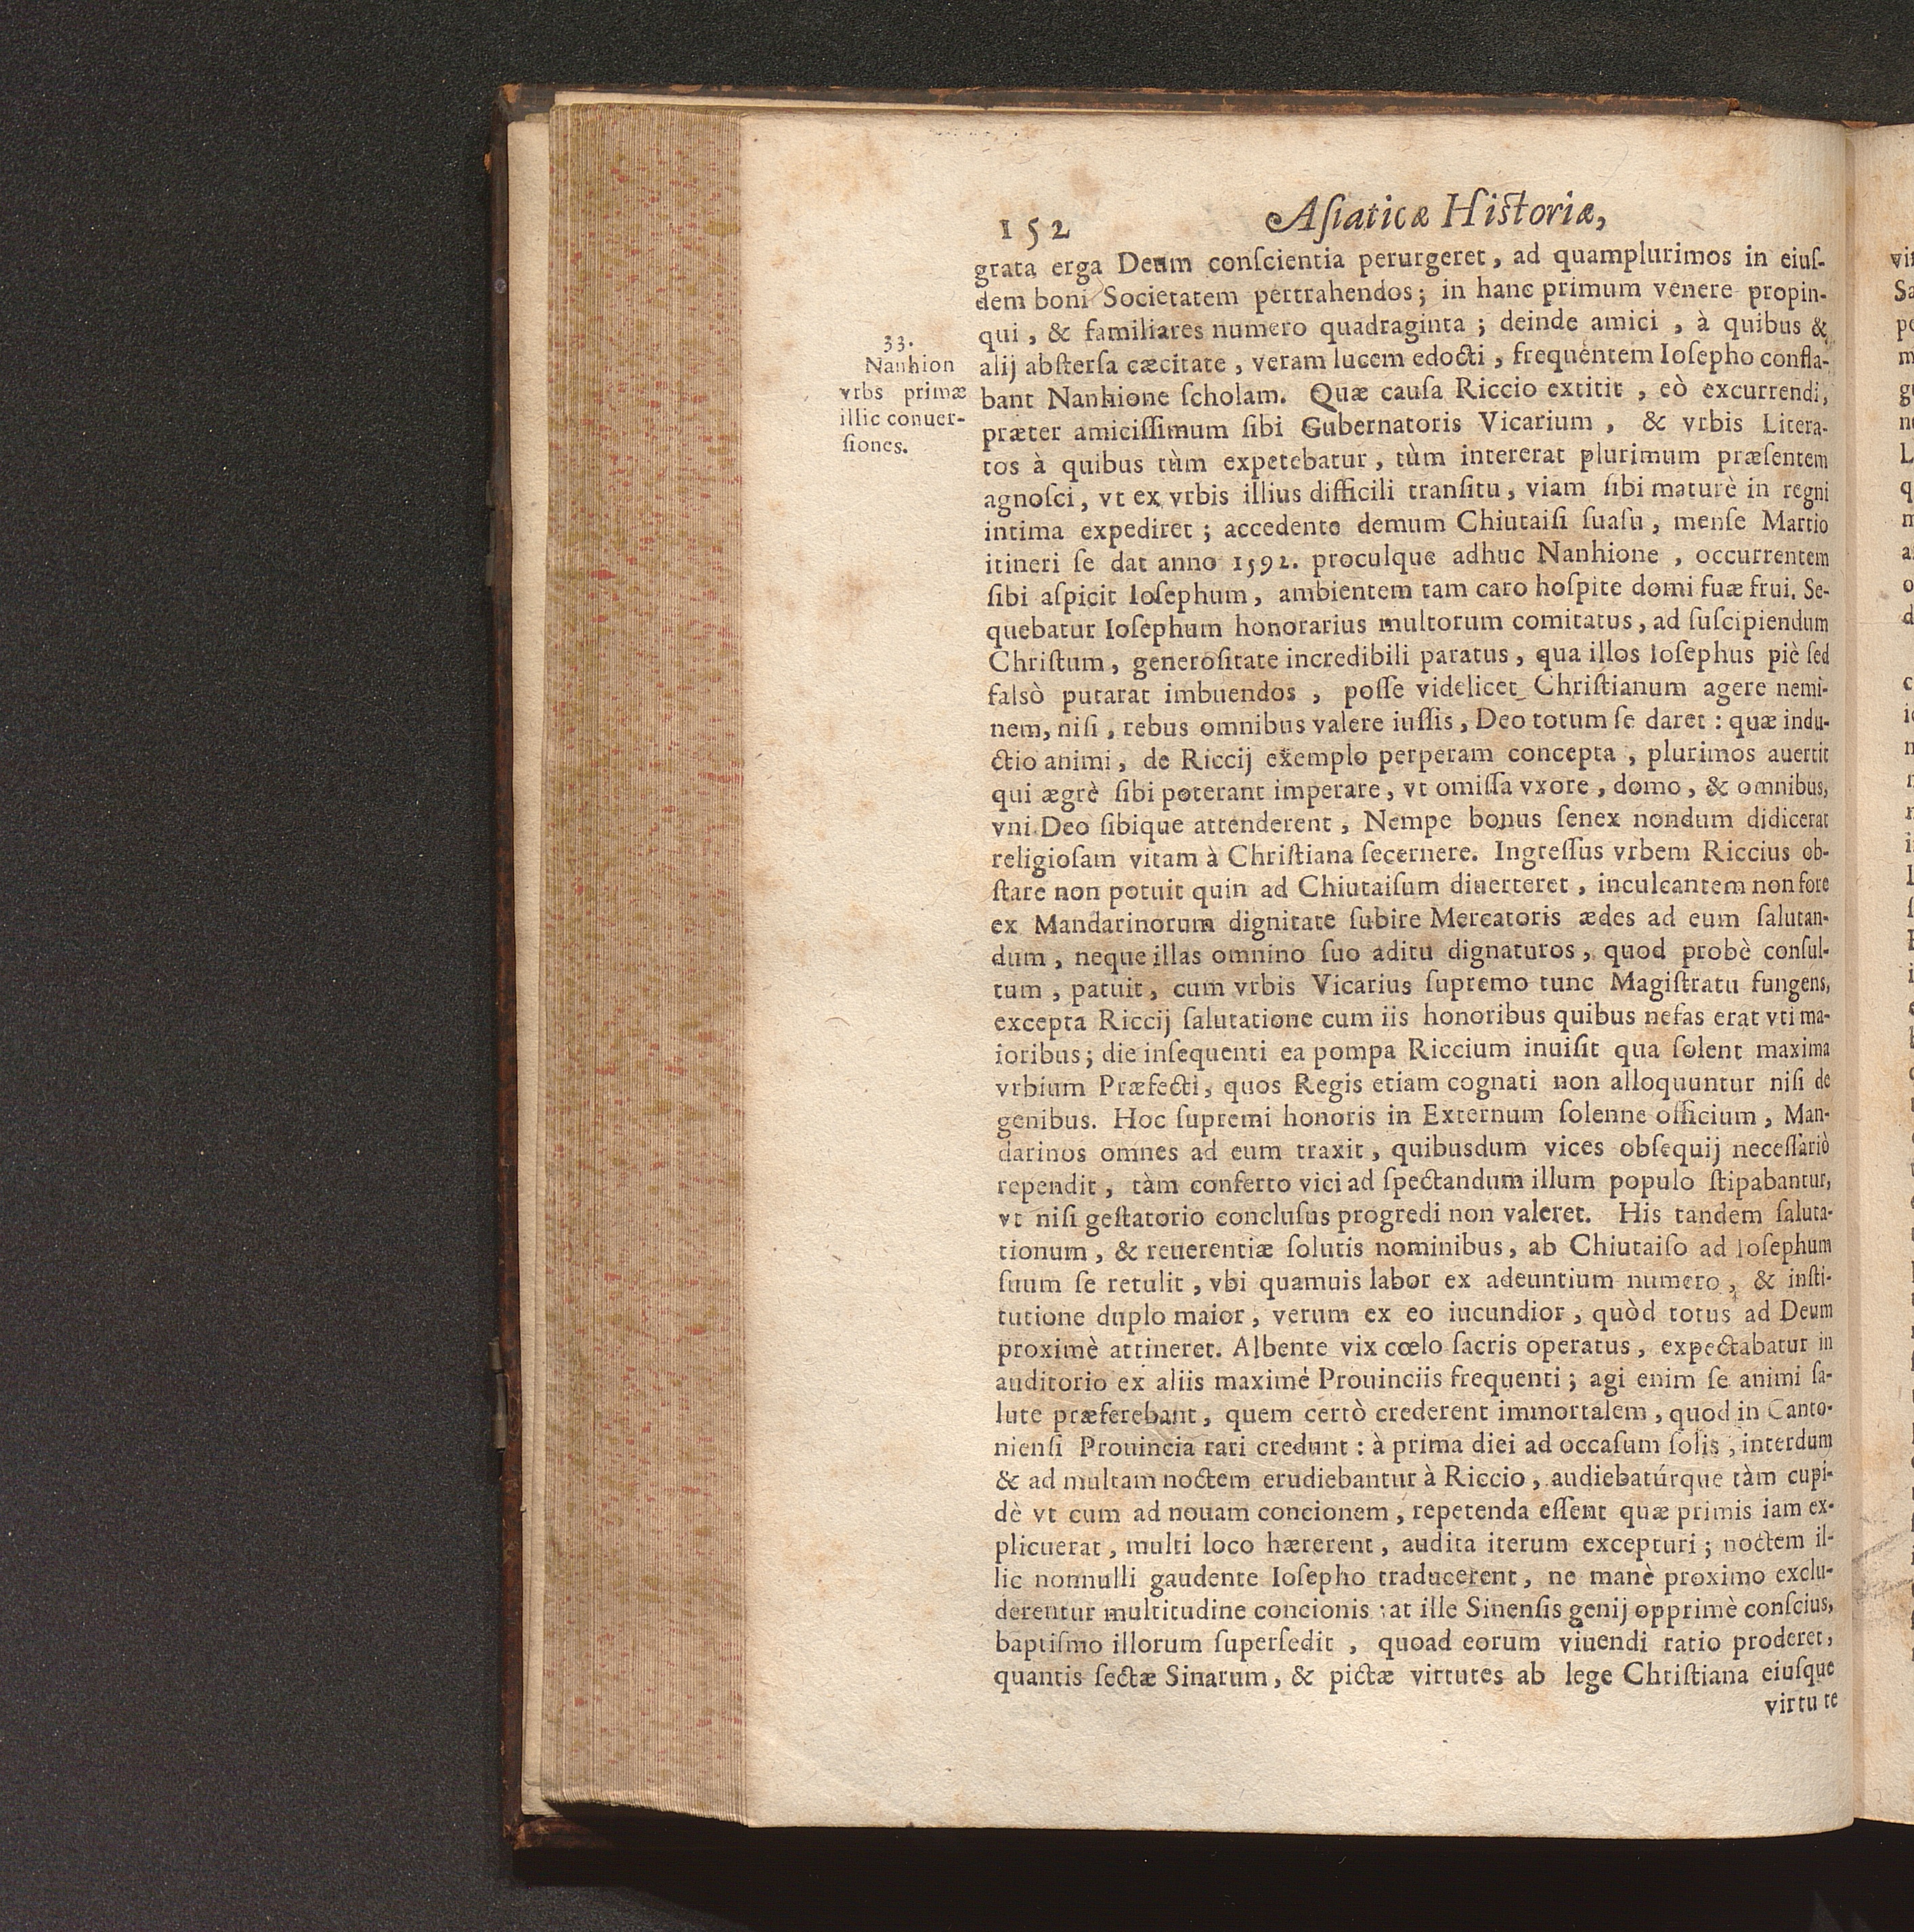 152
Aſiaticæ Historiæ,
grata erga Deum conſcientia perurgeret, ad quamplurimos in eiuſ-
dem boni Societatem pertrahendos; in hanc primum venere propin-
qui, & familiares numero quadraginta; deinde amici, à quibus &
alij abſterſa cæcitate, veram lucem edocti, frequentem Ioſepho confla-
bant Nanhione ſcholam. Quæ cauſa Riccio extitit, eò excurrendi,
præter amiciſſimum ſibi Gubernatoris Vicarium, & vrbis Litera-
tos à quibus tùm expetebatur, tùm intererat plurimum præſentem
agnoſci, vt ex vrbis illius difficili tranſitu, viam ſibi maturè in regni
intima expediret; accedente demum Chiutaiſi ſuaſu, menſe Martio
itineri ſe dat anno 1592. proculque adhuc Nanhione, occurrentem
ſibi aſpicit Ioſephum, ambientem tam caro hoſpite domi ſuæ frui. Se-
quebatur Ioſephum honorarius multorum comitatus, ad ſuſcipiendum
Chriſtum, generoſitate incredibili paratus, qua illos Ioſephus piè ſed
falsò putarat imbuendos, poſſe videlicet Chriſtianum agere nemi-
nem, niſi, rebus omnibus valere iuſſis, Deo totum ſe daret: quæ indu-
ctio animi, de Riccij exemplo perperam concepta, plurimos auertit
qui ægrè ſibi poterant imperare, vt omiſſa vxore, domo, & omnibus,
vni Deo ſibique attenderent, Nempe bonus ſenex nondum didicerat
religioſam vitam à Chriſtiana ſecernere. Ingreſſus vrbem Riccius ob-
ſtare non potuit quin ad Chiutaiſum diuerteret, inculcantem non fore
ex Mandarinorum dignitate ſubire Mercatoris ædes ad eum ſalutan-
dum, neque illas omnino ſuo aditu dignaturos, quod probè conſul-
tum, patuit, cum vrbis Vicarius ſupremo tunc Magiſtratu fungens,
excepta Riccij ſalutatione cum iis honoribus quibus nefas erat vti ma-
ioribus; die inſequenti ea pompa Riccium inuiſit qua ſolent maxima
vrbium Præfecti, quos Regis etiam cognati non alloquuntur niſi de
genibus. Hoc ſupremi honoris in Externum ſolenne officium, Man-
darinos omnes ad eum traxit, quibusdum vices obſequij neceſſariò
rependit, tàm conferto vici ad ſpectandum illum populo ſtipabantur,
vt niſi geſtatorio concluſus progredi non valeret. His tandem ſaluta-
tionum, & reuerentiæ ſolutis nominibus, ab Chiutaiſo ad Ioſephum
ſuum ſe retulit, vbi quamuis labor ex adeuntium numero, & inſti-
tutione duplo maior, verum ex eo iucundior, quòd totus ad Deum
proximè attineret. Albente vix cœlo ſacris operatus, expectabatur in
auditorio ex aliis maximè Prouinciis frequenti; agi enim ſe animi ſa-
lute præferebant, quem certò crederent immortalem, quod in Canto-
nienſi Prouincia rari credunt: à prima diei ad occaſum ſolis, interdum
& ad multam noctem erudiebantur à Riccio, audiebatúrque tàm cupi-
dè vt cum ad nouam concionem, repetenda eſſent quæ primis iam ex-
plicuerat, multi loco hærerent, audita iterum excepturi; noctem il-
lic nonnulli gaudente Ioſepho traducerent, ne manè proximo exclu-
derentur multitudine concionis: at ille Sinenſis genij opprimè conſcius,
baptiſmo illorum ſuperſedit, quoad eorum viuendi ratio proderet,
quantis ſectæ Sinarum, & pictæ virtutes ab lege Chriſtiana eiuſque
virtute
33.
Nanhion
vrbs primæ
illic conuer-
ſiones.